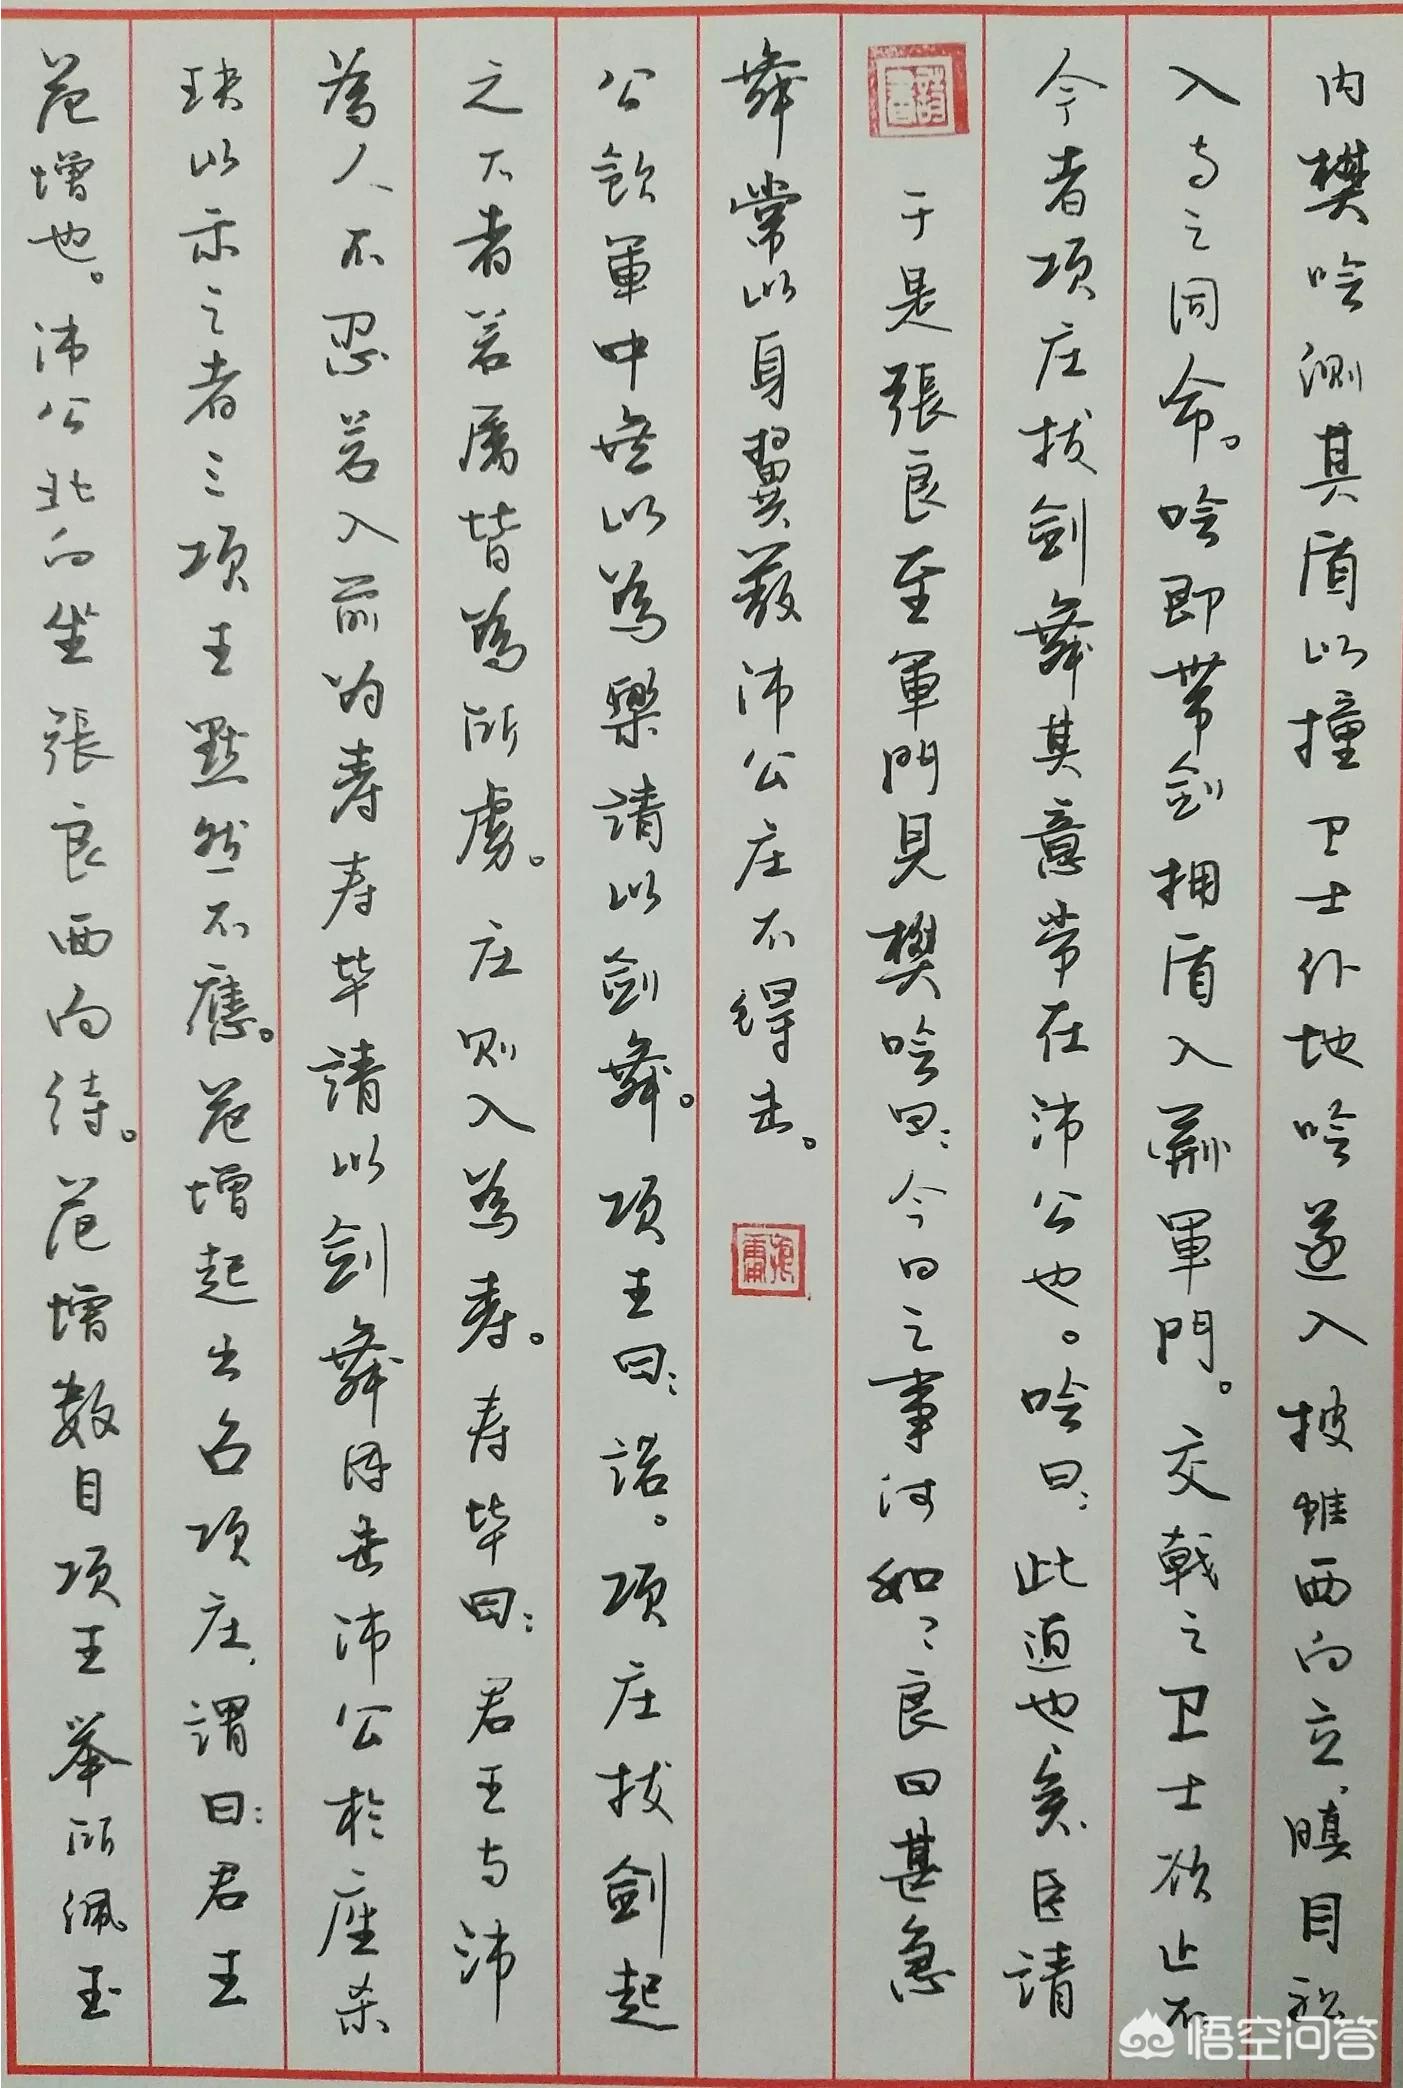 范增也。沛公北向坐張良西向待。范增数目项王举所佩玉
玦以示之者三项王默然不應。范增起出召项庄,謂曰:君王
為人不忍若入前为寿寿毕請以剑舞因击沛公於座杀
之不者若属皆為所虜。庄则入為寿。寿毕曰:君王与沛
公飲軍中無以為樂請以剑舞。项王曰:諾。项庄拔剑起
舞常以身翼蔽沛公庄不得击。
于是張良至軍門見樊哙曰:今日之事何如,良曰甚急
今者项庄拔剑舞其意常在沛公也。哙曰:此迫也矣臣請
入与之同命。哙即带剑拥盾入軍門。交戟之卫士欲止不
内樊哙测其盾以撞卫士仆地哙遂入披帷西向立,瞋目视
悟空问答